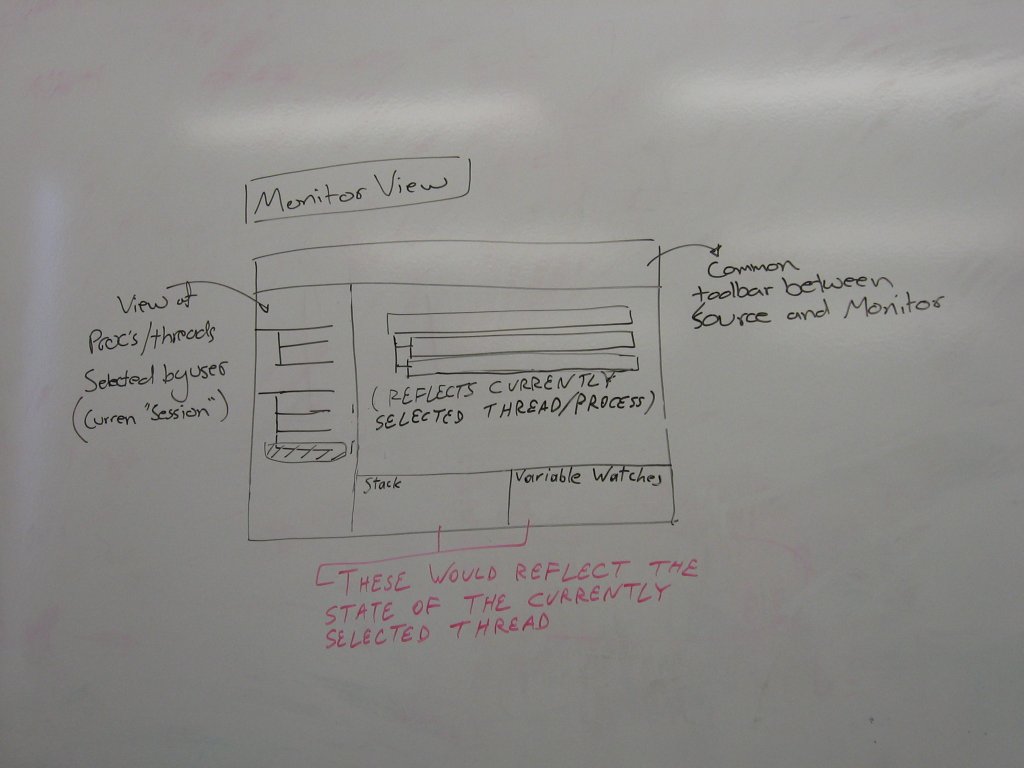 Monitor View
View of
Proc's/threads
Selected by user
(Curren "Session")
Common
toolbar between
Source and Monitor
(REFLECTS CURRENTLY
SELECTED THREAD/PROCESS)
Stack
Variable Watches
THESE WOULD REFLECT THE
STATE OF THE CURRENTLY
SELECTED THREAD